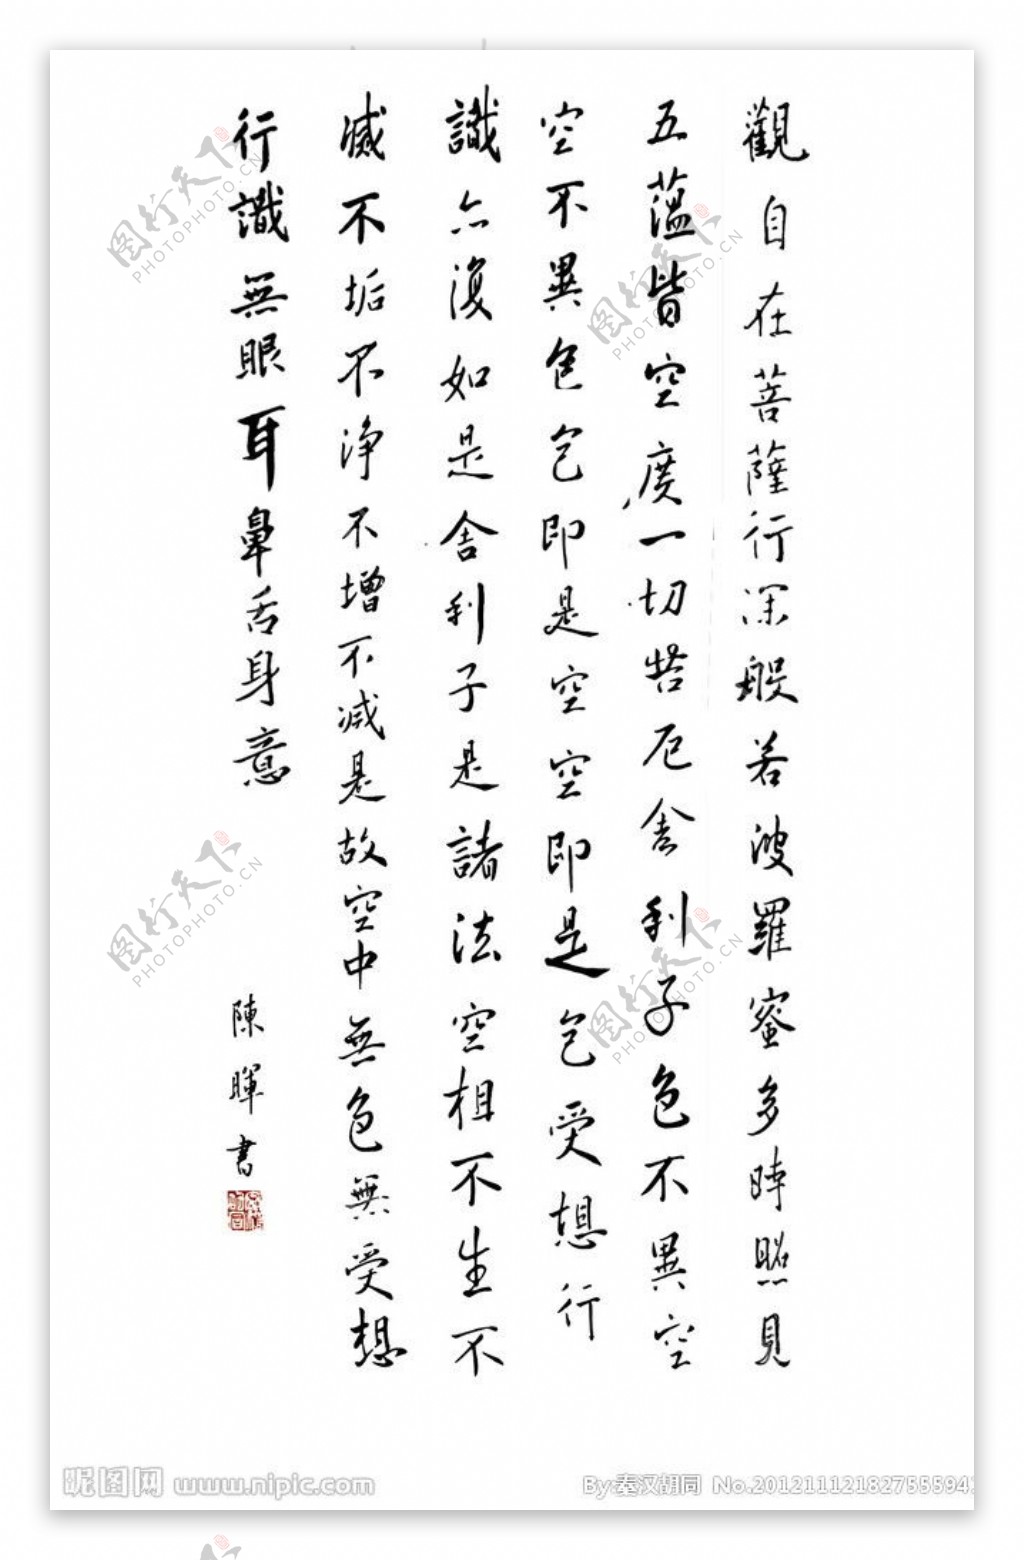 觀自在菩薩行深般若波羅蜜多時照見
五蘊皆空度一切苦厄舍利子色不異空
空不異色色即是空空即是色受想行
識亦復如是舍利子是諸法空相不生不
滅不垢不淨不增不減是故空中無色無受想
行識無眼耳鼻舌身意
陳暉書
图行天下
PHOTOPHOTO.CN
图行天下
PHOTOPHOTO.CN
图行天下
PHOTOPHOTO.CN
图行天下
PHOTOPHOTO.CN
昵图网 www.nipic.com
By:秦汉胡同 No.2012111218275559